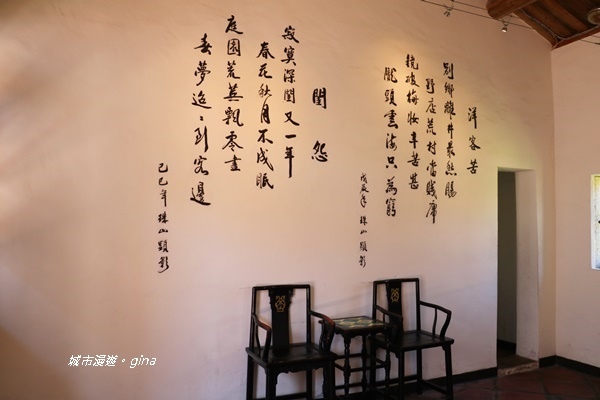 洋客苦
別鄉離井最愁腸
野店荒村當賤席
鏡破梅妝辛苦甚
隴頭熏海只為窮
戊辰年 珠山顯影
閨怨
寂寞深閨又一年
春花秋月不成眠
庭園荒蕪飄零盡
春夢迢迢到客邊
己巳年珠山顯影
城市漫遊。gina